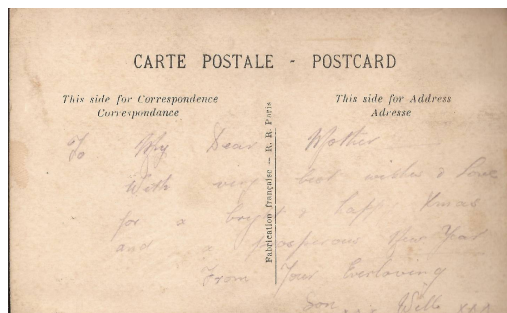 CARTE POSTALE - POSTCARD
This side for Correspondence
Correspondance
This side for Address
Adresse
Fabrication française — R. R. Paris
To My Dear Mother
With very best wishes & Love
for a bright & happy Xmas
and a prosperous New Year
From Your Everloving
Son Will xxx